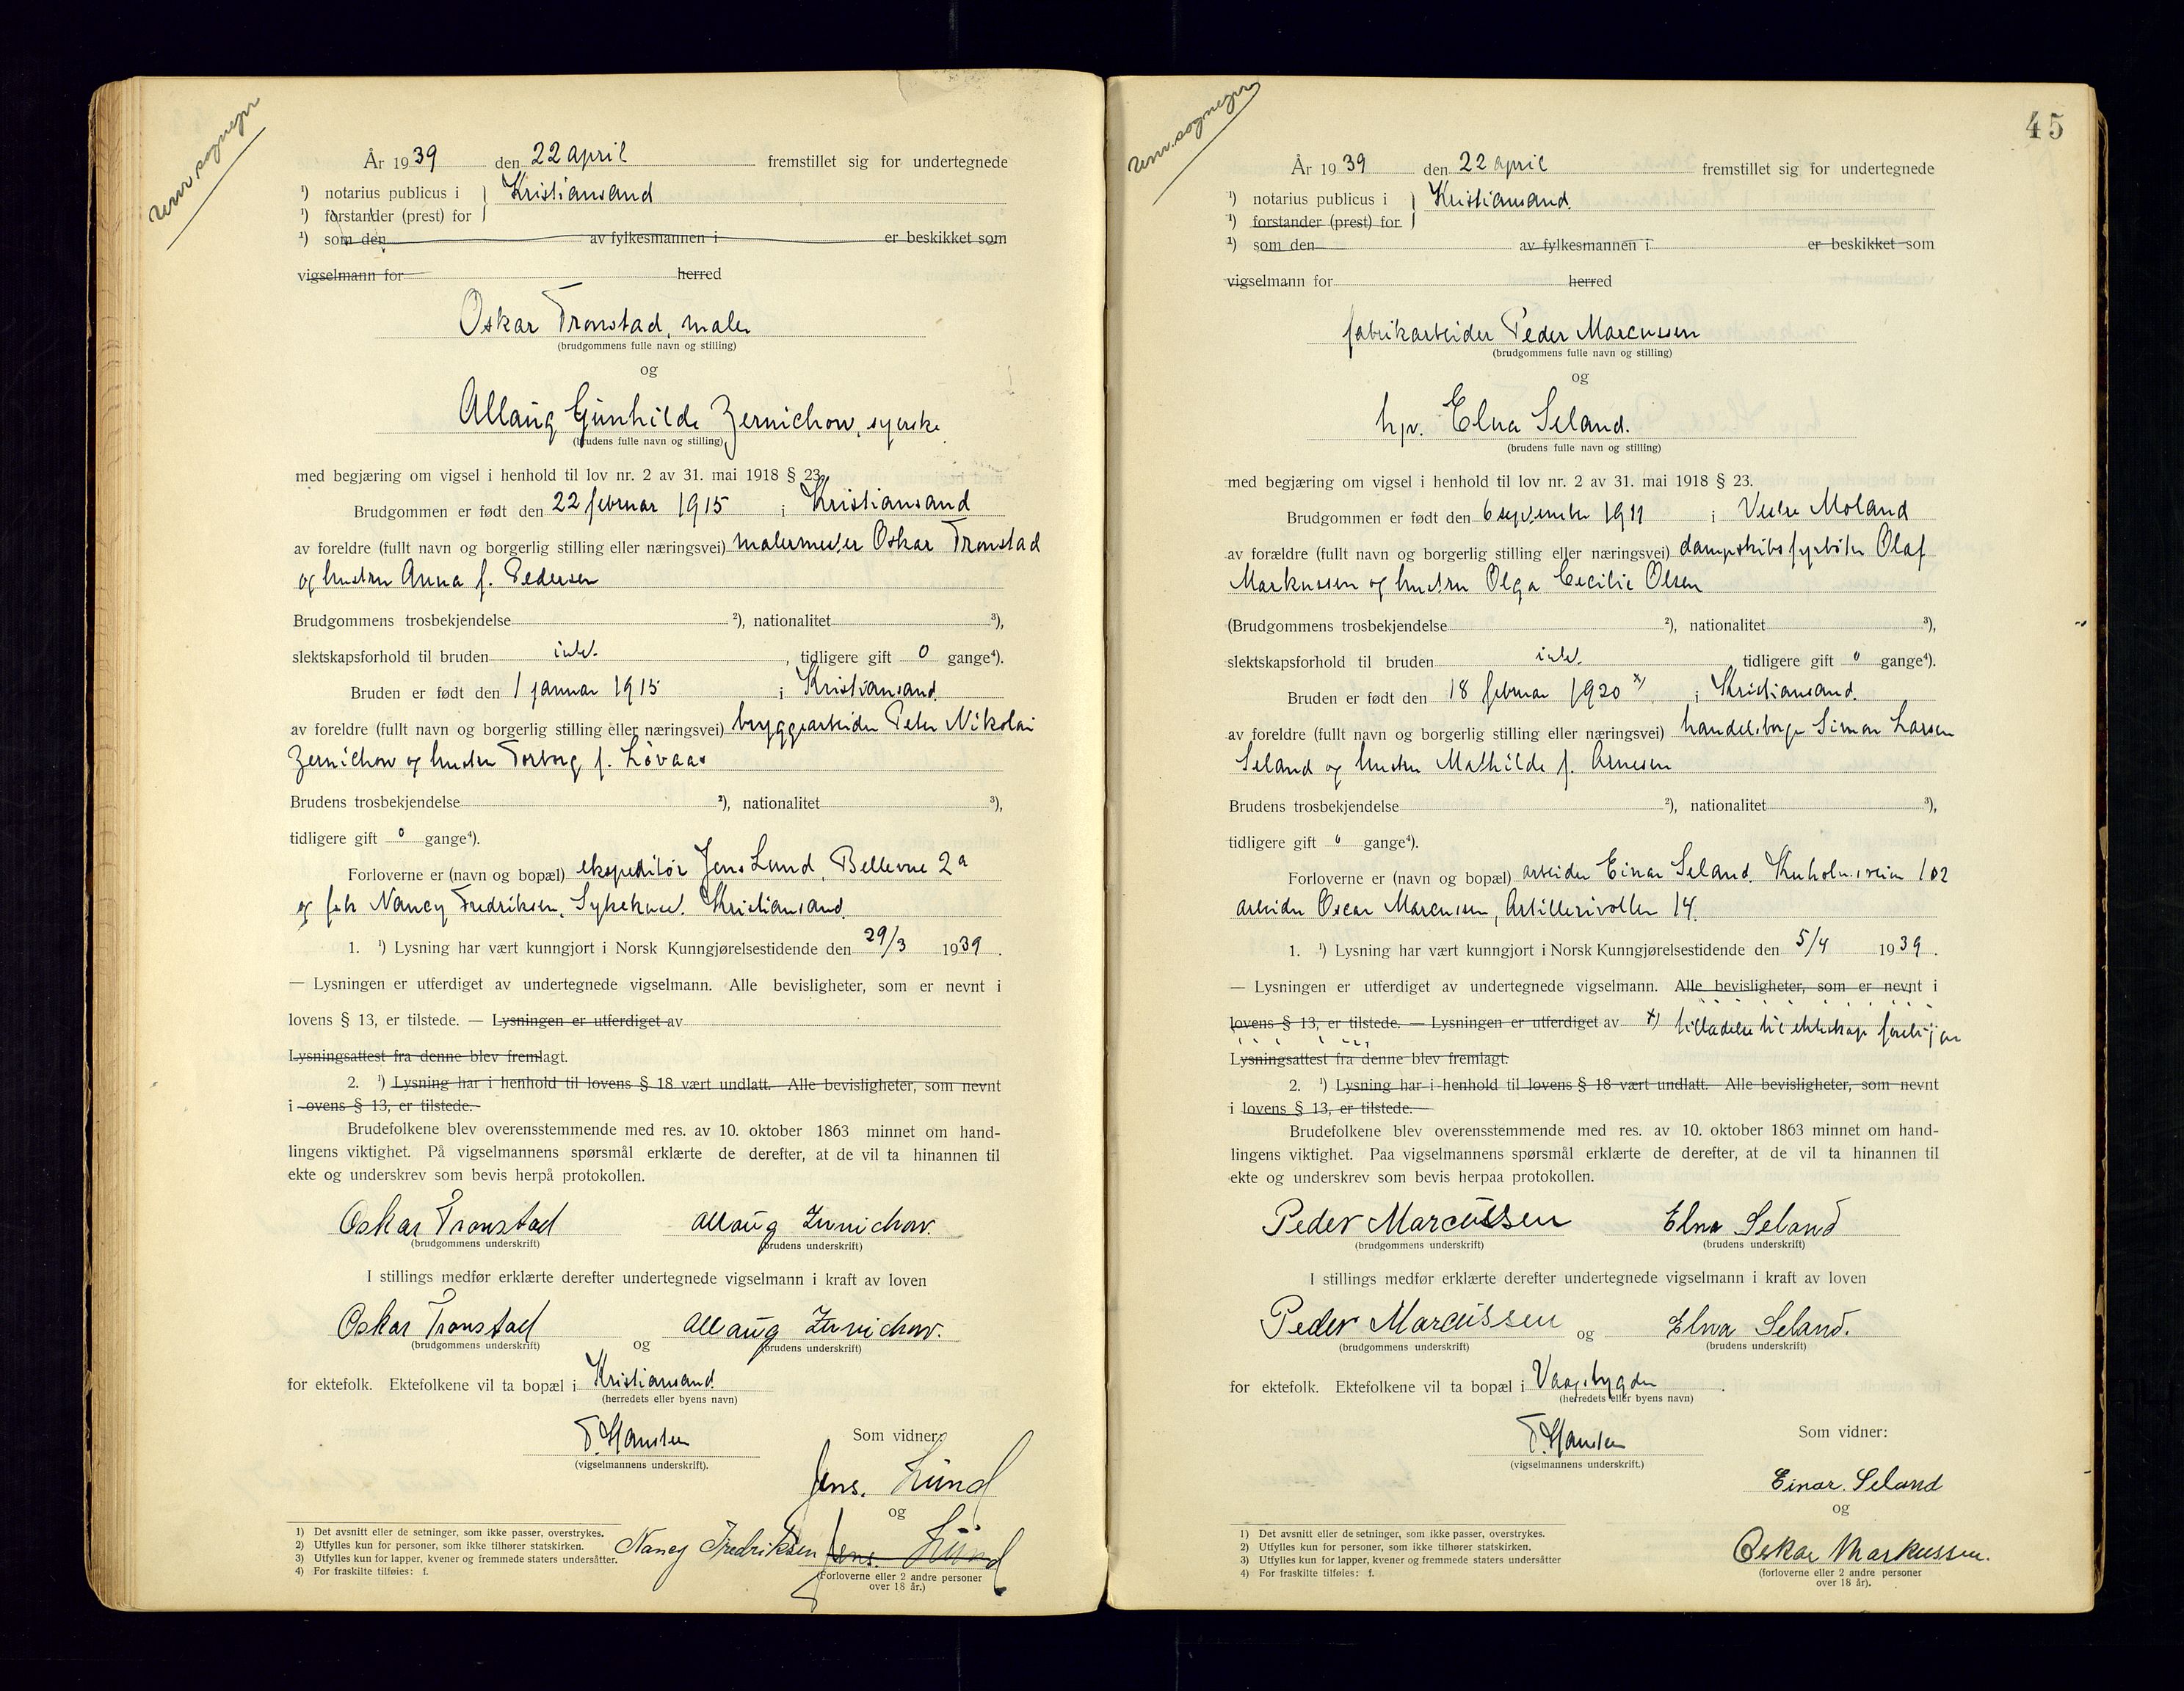 sognepr
År 1939 den 22 april fremstillet sig for undertegnede
¹) notarius publicus i } Kristiansand
¹) forstander (prest) for
¹) som den av fylkesmannen i er beskikket som
vigselmann for herred
Oskar Tronstad, maler
(brudgommens fulle navn og stilling)
og
Allaug Gunhilde Zernichow, syerske
(brudens fulle navn og stilling)
med begjæring om vigsel i henhold til lov nr. 2 av 31. mai 1918 § 23.
Brudgommen er født den 22 februar 1915 i Kristiansand
av foreldre (fullt navn og borgerlig stilling eller næringsvei) malermester Oskar Tronstad
og hustru Anna f. Pedersen
Brudgommens trosbekjendelse ²), nationalitet ³),
slektskapsforhold til bruden intet. , tidligere gift 0 gange⁴).
Bruden er født den 1 januar 1915 i Kristiansand
av foreldre (fullt navn og borgerlig stilling eller næringsvei) bryggearbeider Peter Nikolai
Zernichow og hustru Torborg f. Løvaas
Brudens trosbekjendelse ²), nationalitet ³),
tidligere gift 0 gange⁴).
Forloverne er (navn og bopæl) ekspeditør Jens Lund, Bellevue 2a
og frk Nancy Fredriksen, Sykehuset. Kristiansand.
1. ¹) Lysning har vært kunngjort i Norsk Kunngjørelsestidende den 29/3 1939.
— Lysningen er utferdiget av undertegnede vigselmann. Alle bevisligheter, som er nevnt i
lovens § 13, er tilstede. — Lysningen er utferdiget av
Lysningsattest fra denne blev fremlagt.
2. ¹) Lysning har i henhold til lovens § 18 vært undlatt. Alle bevisligheter, som nevnt
i ovens § 13, er tilstede.
Brudefolkene blev overensstemmende med res. av 10. oktober 1863 minnet om hand-
lingens viktighet. På vigselmannens spørsmål erklærte de derefter, at de vil ta hinannen til
ekte og underskrev som bevis herpå protokollen.
Oskar Tronstad Allaug Zernichow.
(brudgommens underskrift) (brudens underskrift)
I stillings medfør erklærte derefter undertegnede vigselmann i kraft av loven
Oskar Tronstad og Allaug Zernichow.
(brudgommens underskrift) (brudens underskrift)
for ektefolk. Ektefolkene vil ta bopæl i Kristiansand
(herredets eller byens navn)
T. Hansten Som vidner:
(vigselmannens underskrift).
Jens. Lund
og
Nancy Fredriksen Jens. Lund
(Forloverne eller 2 andre personer
over 18 år.)
1) Det avsnitt eller de setninger, som ikke passer, overstrykes.
2) Utfylles kun for personer, som ikke tilhører statskirken.
3) Utfylles kun for lapper, kvener og fremmede staters undersåtter.
4) For fraskilte tilføies: f.
sognepr
45
År 1939 den 22 april fremstillet sig for undertegnede
¹) notarius publicus i } Kristiansand.
¹) forstander (prest) for
¹) som den av fylkesmannen i er beskikket som
vigselmann for herred
fabrikarbeider Peder Marcussen
(brudgommens fulle navn og stilling)
og
hjv. Elna Seland.
(brudens fulle navn og stilling)
med begjæring om vigsel i henhold til lov nr. 2 av 31. mai 1918 § 23.
Brudgommen er født den 6 september 1911 i Vestre Moland
av forældre (fullt navn og borgerlig stilling eller næringsvei) dampskibsfyrbøter Olaf
Markussen og hustru Olga Cecilie Olsen
(Brudgommens trosbekjendelse ²), nationalitet ³),
slektskapsforhold til bruden intet. tidligere gift 0 gange⁴).
Bruden er født den 18 februar 1920 x) i Kristiansand.
av foreldre (fullt navn og borgerlig stilling eller næringsvei) handelsborger Simon Larsen
Seland og hustru Mathilde f. Arnesen
Brudens trosbekjendelse ²), nationalitet ³),
tidligere gift 0 gange⁴).
Forloverne er (navn og bopæl) arbeider Einar Seland. Kuholmsveien 102
arbeider Oscar Marcussen, Artillerivollen 14.
1. ¹) Lysning har vært kunngjort i Norsk Kunngjørelsestidende den 5/4 1939.
— Lysningen er utferdiget av undertegnede vigselmann. Alle bevisligheter, som er nevnt i
lovens § 13, er tilstede. — Lysningen er utferdiget av x) tilladelse til ekteskap foreligger
Lysningsattest fra denne blev fremlagt.
2. ¹) Lysning har i henhold til lovens § 18 vært undlatt. Alle bevisligheter, som nevnt
i lovens § 13, er tilstede.
Brudefolkene blev overensstemmende med res. av 10. oktober 1863 minnet om hand-
lingens viktighet. Paa vigselmannens spørsmål erklærte de derefter, at de vil ta hinannen til
ekte og underskrev som bevis herpaa protokollen.
Peder Marcussen Elna Seland
(brudgommens underskrift) (brudens underskrift)
I stillings medfør erklærte derefter undertegnede vigselmann i kraft av loven
Peder Marcussen og Elna Seland.
(brudgommens underskrift) (brudens underskrift)
for ektefolk. Ektefolkene vil ta bopæl i Vaagsbygden.
(herredets eller byens navn)
T. Hansten Som vidner:
(vigselmannens underskrift.)
Einar. Seland
og
Oskar Markussen.
(forloverne eller 2 andre personer
over 18 år).
1) Det avsnitt eller de setninger, som ikke passer, overstrykes.
2) Utfylles kun for personer, som ikke tilhører statskirken.
3) Utfylles kun for lapper, kvener og fremmede staters undersåtter
4) For fraskilte tilføies: f.